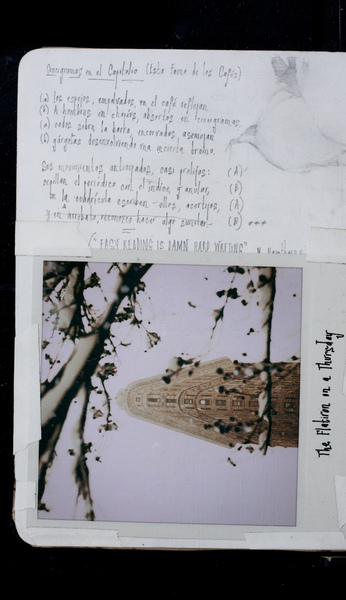 en el Capitolio (Esta Fauna de los Cafés)
(a) los espejos, empolvados, en el café reflejan
(b) A hombres en chapós, absortos en
(a) codos sobre la barra, encorvados, asemejan
(b) gárgolas desenvolviendo una incierta broma.
Sus movimientos anticuados, casi prolijos: (A)
el periódico con el índice y anular, (B)
en la escriben-ellos, acertijos, (A)
y en arrebato, hacer algo (B) ***
("EASY READING IS DAMN HARD WRITING" N. Hawthorne
The Flatiron on a Thursday